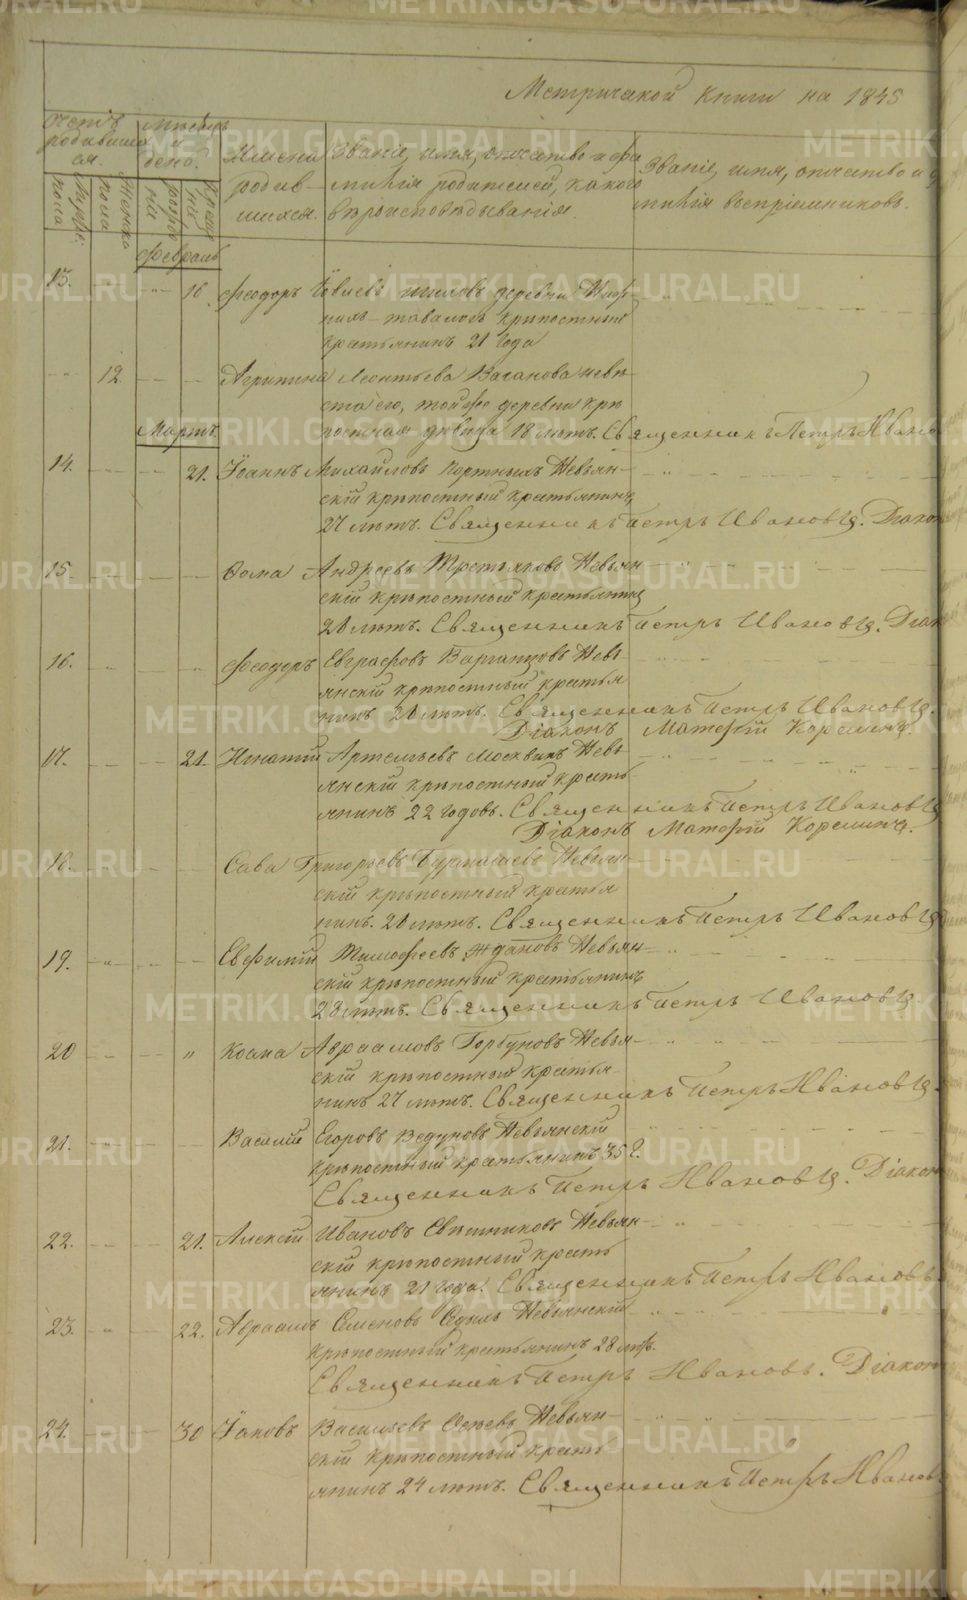 Метрической книги на 1845
счетъ родившихся.
мѣсяцъ и день.
Имена родившихся.
Званіе, имя, отчество и фамилія родителей, какого вѣроисповѣдыванія.
Званіе, имя, отчество и
милія воспріемниковъ.
Мужеск: пола
Женска пола
Февраль
13. 16 Феодоръ
шиловъ деревни
крѣпостный
крестьянинъ 21 года
12 Агрипина Леонтьева Ваганова невѣ
ста его, той же деревни крѣ
Мартъ
постная дѣвица 18 лѣтъ. Священникъ Петръ Ивано
14. 21. Іоаннъ Михайловъ Портныхъ Невьян-
скій крѣпостный крестьянинъ
27 лѣтъ. Священникъ Петръ Ивановъ. Діакон
15 Ѳома Андреевъ Третьяковъ Невьян
скій крѣпостный крестьянинъ
20 лѣтъ. Священникъ Петръ Ивановъ. Діак
16. Феодоръ Евграфовъ Варганцовъ Невь
янскій крѣпостный крестья
нинъ 20 лѣтъ. Священникъ Петръ Ивановъ.
Діаконъ Матфій Корелинъ.
17. 21. Игнатій Артемьевъ Москвинъ Невь
янскій крѣпостный кресть
янинъ 22 годовъ. Священникъ Петръ Ивановъ
Діаконъ Матфій Корелинъ.
18. Сава Григорьевъ Бурнашевъ Невьян
скій крѣпостный крестья
нинъ. 20 лѣтъ. Священникъ Петръ Ивановъ
19. Евфимій Тимофеевъ Ждановъ Невьян
скій крѣпостный крестьянинъ
28 лѣтъ. Священникъ Петръ Ивановъ
20 " Козма Авраамовъ Горбуновъ Невья-
скій крѣпостный крестья
нинъ 27 лѣтъ. Священникъ Петръ Ивановъ.
21. Василій Егоровъ Ведуновъ Невьянскій
крѣпостный крестьянинъ 35 г.
Священникъ Петръ Ивановъ. Діакон
22. 21. Алексій Ивановъ Свѣшниковъ Невьян-
скій крѣпостный кресть
янинъ 21 года. Священникъ Петръ Ивановъ.
23. 22. Авраамъ Семеновъ Невьянскій
крѣпостный крестьянинъ 28 лѣтъ.
Священникъ Петръ Ивановъ. Діакон
24. 30 Іаковъ Васильевъ Невьян-
скій крѣпостный кресть
янинъ 24 лѣтъ. Священникъ Петръ Иванов
METRIKI.GASO-URAL.RU